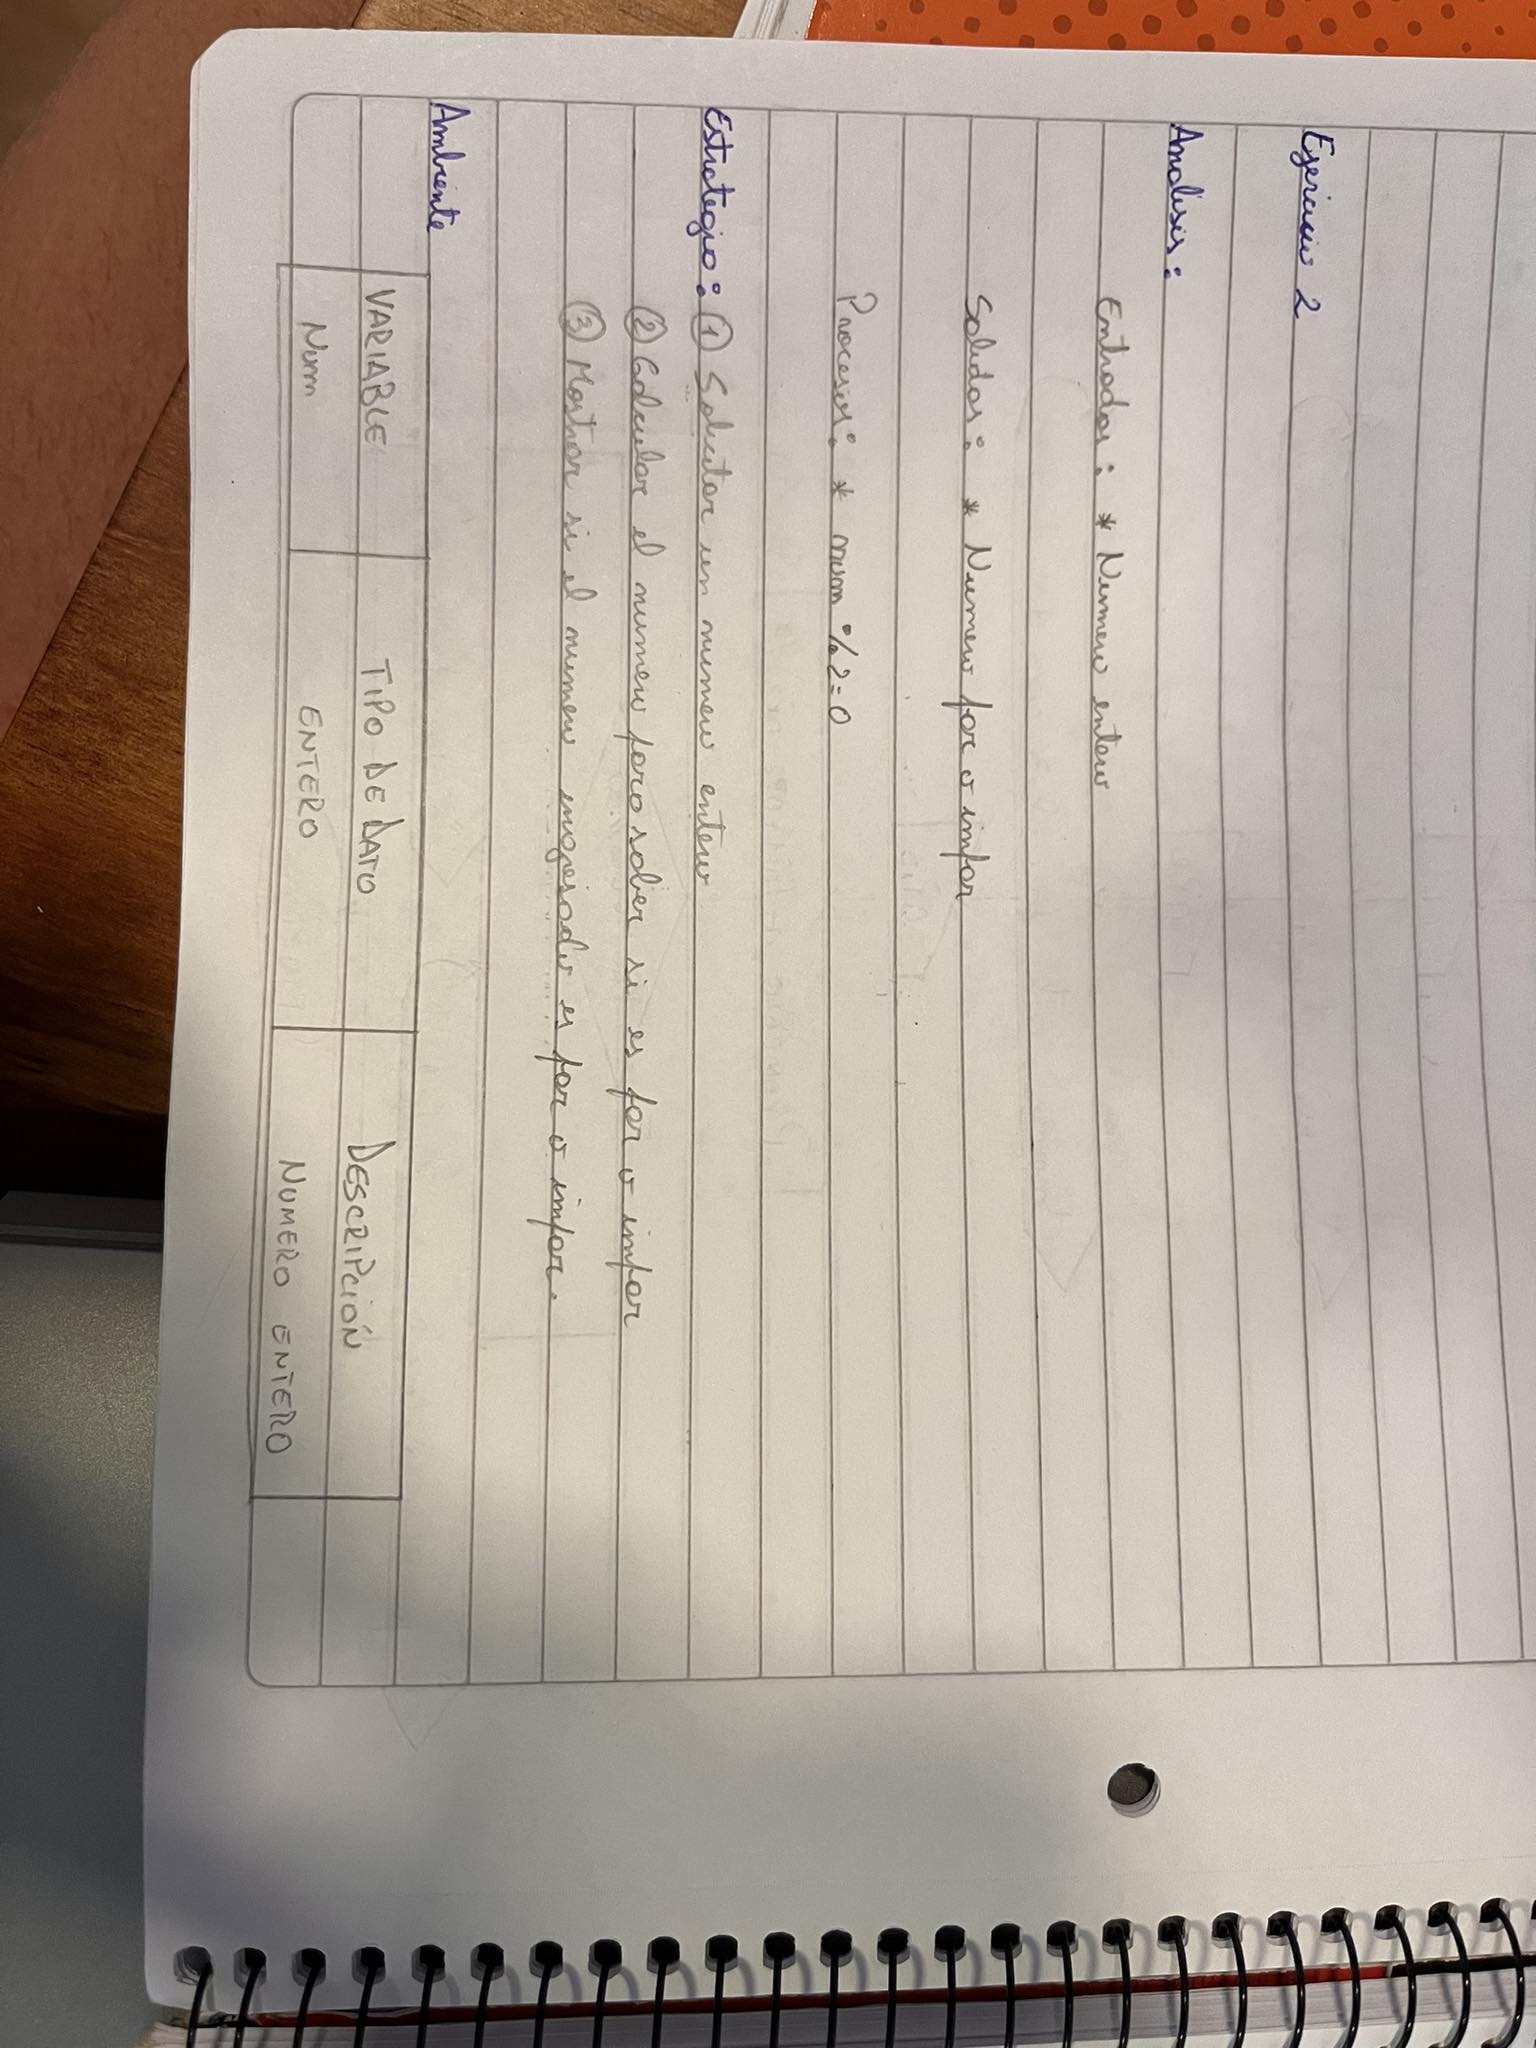 Ejercicio 2
Analisis:
Entradas: * Numero entero
Salidas: * Numero par o impar
Procesos: * num % 2=0
Estrategia: ① Solicitar un numero entero
② Calcular el numero para saber si es par o impar
③ Mostrar si el numero ingresado es par o impar.
Ambiente
VARIABLE TIPO DE DATO DESCRIPCIÓN
Num ENTERO NUMERO ENTERO